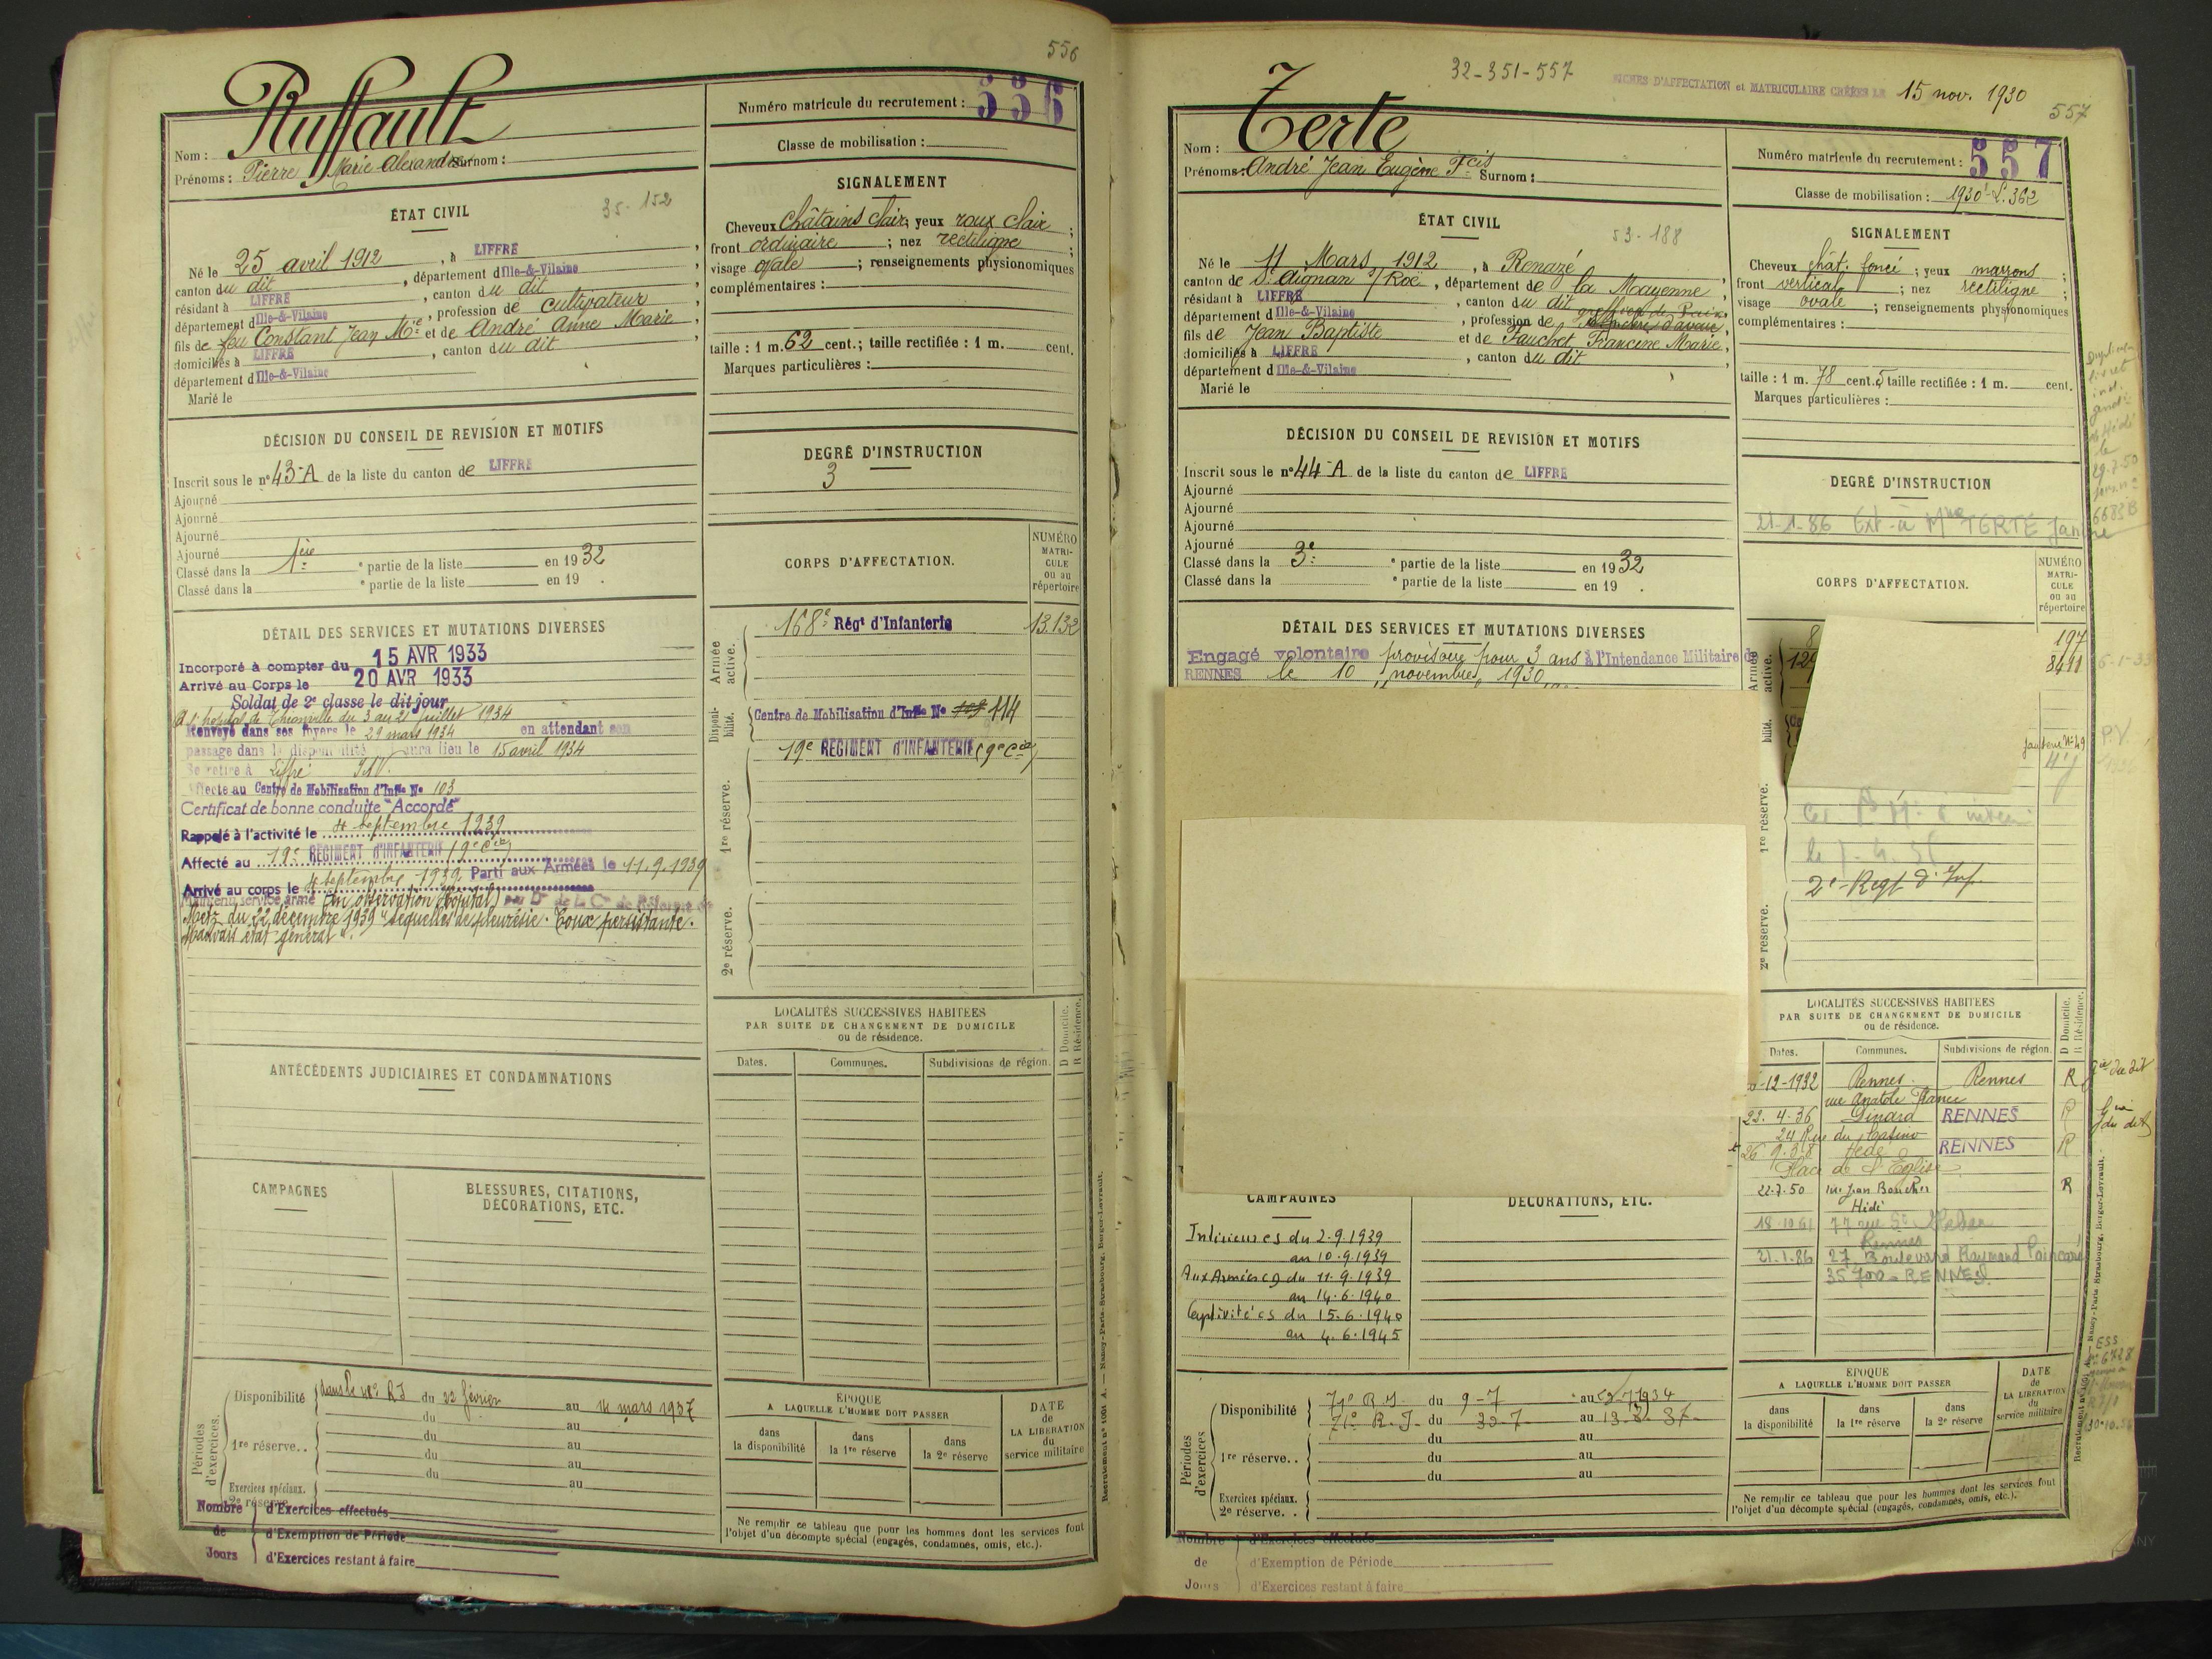 556
Ruffault
Nom :
Prénoms : Pierre Marie Alexandre Surnom :
Numéro matricule du recrutement : 556
Classe de mobilisation :
ÉTAT CIVIL
35-152
Né le 25 avril 1912, à LIFFRÉ,
canton du dit, département d'Ille-&-Vilaine,
résidant à LIFFRÉ, canton du dit
département d'Ille-&-Vilaine, profession de cultivateur,
fils de feu Constant Jean Mie et de André Anne Marie,
domiciliés à LIFFRÉ, canton du dit
département d'Ille-&-Vilaine
Marié le
SIGNALEMENT
Cheveux Châtains clair; yeux roux clair;
front ordinaire; nez rectiligne;
visage ovale; renseignements physionomiques
complémentaires :
taille : 1 m. 62 cent.; taille rectifiée : 1 m. cent.
Marques particulières :
DÉCISION DU CONSEIL DE REVISION ET MOTIFS
Inscrit sous le n° 43-A de la liste du canton de LIFFRÉ
Ajourné
Ajourné
Ajourné
Ajourné
Classé dans la 1ère e partie de la liste en 1932
Classé dans la e partie de la liste en 19 .
DEGRÉ D'INSTRUCTION
3
DÉTAIL DES SERVICES ET MUTATIONS DIVERSES
Incorporé à compter du 15 AVR 1933
Arrivé au Corps le 20 AVR 1933
Soldat de 2e classe le dit jour
A l'hôpital de Thionville du 3 au 21 juillet 1934
Renvoyé dans ses foyers le 29 mars 1934 en attendant son
passage dans la disponibilité aura lieu le 15 avril 1934
Se retire à Liffré
Affecté au Centre de Mobilisation d'Infie No 103
Certificat de bonne conduite "Accordé"
Rappelé à l'activité le 4 septembre 1939
Affecté au 19e RÉGIMENT D'INFANTERIE (9e Cie)
Arrivé au corps le 4 septembre 1939 Parti aux Armées le 11.9.1939
Maintenu service armé (en observation hôpital) par Don de la Con de Réforme de
Metz du 22 décembre 1939 "séquelles de pleurésie. Toux persistante.
Mauvais état général".
CORPS D'AFFECTATION.
NUMÉRO MATRICULE ou au répertoire
Armée active.
168e Régt d'Infanterie 13.132
Disponibilité.
Centre de Mobilisation d'Infie No 103 114
19e REGIMENT D'INFANTERIE (9e Cie)
1re réserve.
2e réserve.
LOCALITÉS SUCCESSIVES HABITÉES
PAR SUITE DE CHANGEMENT DE DOMICILE
ou de résidence.
Dates. Communes. Subdivisions de région. D Domicile. R Résidence.
ANTÉCÉDENTS JUDICIAIRES ET CONDAMNATIONS
CAMPAGNES
BLESSURES, CITATIONS,
DÉCORATIONS, ETC.
Périodes d'exercices.
Disponibilité dans le RI du 22 février au 14 mars 1937
du au
1re réserve.. du au
du au
du au
Exercices spéciaux.
2e réserve..
Nombre de Jours
d'Exercices effectués
d'Exemption de Période
d'Exercices restant à faire
ÉPOQUE
A LAQUELLE L'HOMME DOIT PASSER
dans la disponibilité dans la 1re réserve dans la 2e réserve
DATE de LA LIBÉRATION du service militaire
Ne remplir ce tableau que pour les hommes dont les services font
l'objet d'un décompte spécial (engagés, condamnés, omis, etc.).
Recrutement n° 1001 A. — Nancy-Paris-Strasbourg, Berger-Levrault.
32-351-557
FICHES D'AFFECTATION et MATRICULAIRE CRÉÉES LE 15 nov. 1930
557
Terte
Nom :
Prénoms : André Jean Eugène Fcis Surnom :
Numéro matricule du recrutement : 557
Classe de mobilisation : 1930
ÉTAT CIVIL
53-188
Né le 11 Mars 1912, à Renazé
canton de St Aignan s/ Roë, département de la Mayenne,
résidant à LIFFRÉ, canton du dit
département d'Ille-&-Vilaine, profession de greffier de Paix,
fils de Jean Baptiste et de Fauchet Francine Marie,
domiciliés à LIFFRÉ, canton du dit
département d'Ille-&-Vilaine
Marié le
SIGNALEMENT
Cheveux chât. foncé; yeux marrons;
front vertical; nez rectiligne;
visage ovale; renseignements physionomiques
complémentaires :
taille : 1 m. 78 cent. 5 taille rectifiée : 1 m. cent.
Marques particulières :
DÉCISION DU CONSEIL DE REVISION ET MOTIFS
Inscrit sous le n° 44-A de la liste du canton de LIFFRÉ
Ajourné
Ajourné
Ajourné
Ajourné
Classé dans la 3e e partie de la liste en 1932
Classé dans la e partie de la liste en 19 .
DEGRÉ D'INSTRUCTION
21-1-86 Ext. à Mme TERTE Janine
DÉTAIL DES SERVICES ET MUTATIONS DIVERSES
Engagé volontaire provisoire pour 3 ans à l'Intendance Militaire de
RENNES le 10 novembre 1930
CORPS D'AFFECTATION.
NUMÉRO MATRICULE ou au répertoire
Armée active.
197
8411
1re réserve.
2e Régt d'Inf.
2e réserve.
LOCALITÉS SUCCESSIVES HABITÉES
PAR SUITE DE CHANGEMENT DE DOMICILE
ou de résidence.
Dates. Communes. Subdivisions de région. D Domicile. R Résidence.
-12-1932 Rennes Rennes R
rue Anatole France
22.4.36 Dinard RENNES R
24 Rue du Casino
26.9.38 Hédé RENNES R
Place de l'Église
22.7.50 rue Jean Boucher R
Hédé
18.10.61 77 rue St Hélier
Rennes
21.1.86 27 Boulevard Raymond Poincaré
35700 - RENNES.
CAMPAGNES
DÉCORATIONS, ETC.
Intérieure cs du 2.9.1939
au 10.9.1939
Aux Armées cd du 11.9.1939
au 14.6.1940
Captivité cs du 15.6.1940
au 4.6.1945
Périodes d'exercices
Disponibilité 71e R.I. du 9-7 au 29-7-1934
71e R.I. du 30-7 au 19-8-37
du au
1re réserve.. du au
du au
Exercices spéciaux.
2e réserve..
Nombre de Jours
d'Exercices effectués
d'Exemption de Période
d'Exercices restant à faire
ÉPOQUE
A LAQUELLE L'HOMME DOIT PASSER
dans la disponibilité dans la 1re réserve dans la 2e réserve
DATE de LA LIBÉRATION du service militaire
Ne remplir ce tableau que pour les hommes dont les services font
l'objet d'un décompte spécial (engagés, condamnés, omis, etc.).